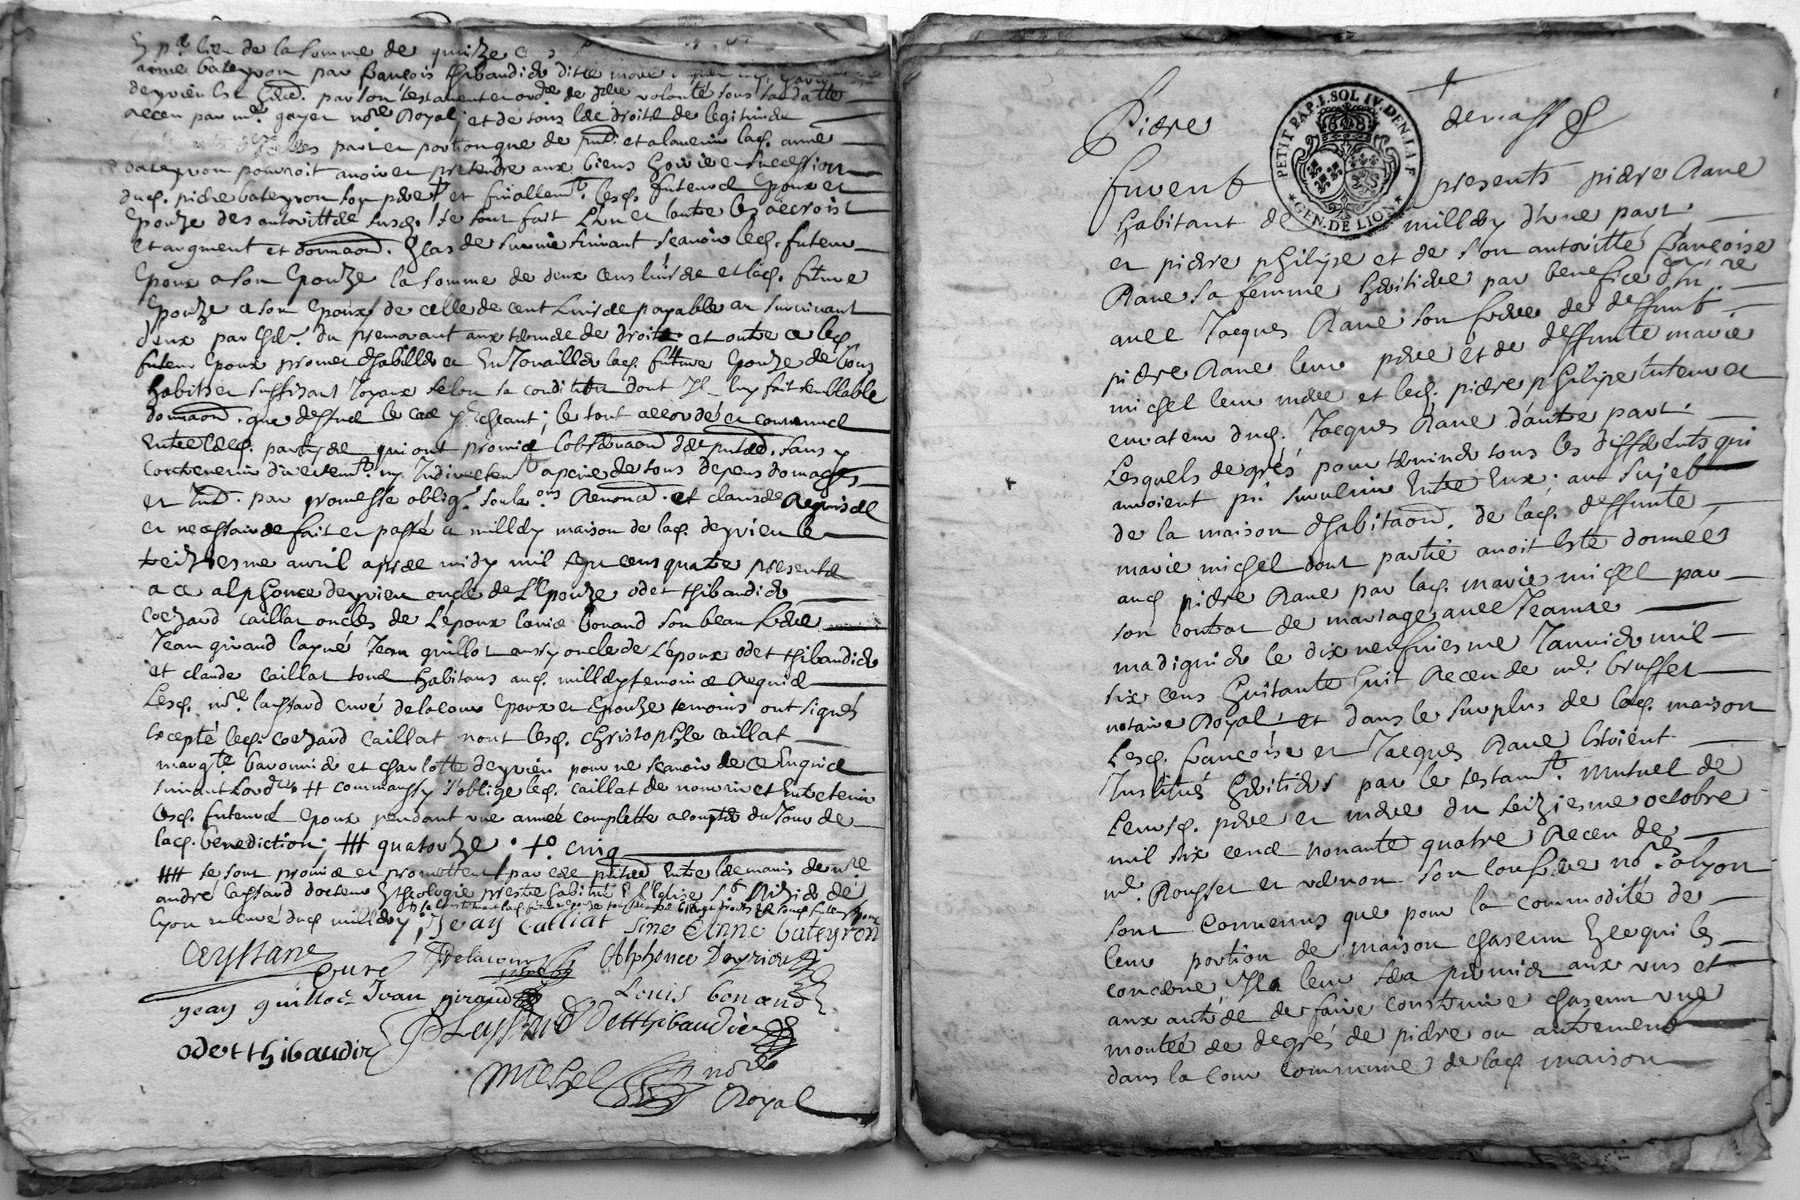 lieu de la somme de quinze cens
anne bateyron par françois thibaudier
deyvieu par son testament et ordre de volonté sous sa datte
receu par me gayer nore Royal, et de tous les droits de legitime
part et portion que de et alavenir lad. anne
bateyron pouvoit avoir et pretendre aux biens hoirie et succession
dud. pierre bateyron son pere, et finallemt. lesd. futurs Epoux et
Epouze des autorittés susd. se sont fait L'un et lautre
et augment et donnaon. de survie suivant scavoir led. futeur
Epoux a son Epouze la somme de deux cens livres et lad. future
Epouze a son Epoux de celle de cent Livres payable au survivant
d'eux par du premourant aux termes de droits. et outre ce led.
futeur Epoux promet dhabiller et Enjouailler lad. future Epouze de bons
habits et suffizant joyaux selon sa condition dont Il luy fait semblable
donnaon. que dessus le cas y Escheant; le tout accordé et convenu
Entre lesd. partyes qui ont promis lobservaon sans y
contrevenir directemt. ny Indirectemt. a peine de tous depens domages
et Int. par promesse oblig. et clauses Requises
et necessaires fait et passé a millery maison de lad. deyvieu le
treiziesme avril apres midy mil sept cens quatre presents
a ce alphonce deyvieu oncle de L'Epouze odet thibaudier
caillat oncles de Lepoux louis bonand son beau frere
Jean giraud layné Jean guillot aussy oncle de L'époux odet thibaudier
et claude caillat tous habitans aud. millery temoins Requis
Lesd. mre. curé delacour Epoux et Epouze temoins ont signés
Excepté led. caillat nont lesd. christophle caillat
margte. et charlotte deyvieu pour ne scavoir de ce Enquis
suivant Lordre # comm'aussy s'oblige led. caillat de nourir et Entretenir
lesd. futeurs Epoux pendant une année complette a compter du Jour de
lad. benediction; ### quatorze. cinq
#### se sont promis et promettent par Entre les mains de mre
andré docteur En theologie prestre habitué En l'Eglise St. Nizier de
lyon et curé dud. millery, Jean Calliat sine Anne bateyron
curé Delacour Alphonce Deyvieu
jean guilloz Jean giraud Louis bonand
odet thibaudier
odet thibaudier
michel nore
Royal
Pierre
PETIT PAP. I. SOL IV. DEN. LA F
GEN. DE LION
furent presents pierre Rave
habitant de millery d'une part
et pierre philipe et de son autoritté françoise
Rave sa femme heritiere par benefice d'Inre
avec Jacques Rave son frere de deffunt
pierre Rave leur pere et de deffunte marie
michel leur mere et led. pierre philipe tuteur et
curateur dud. Jacques Rave d'autre part
Lesquels de grés pour terminer tous les differents qui
auroient pû survenir Entre Eux, au sujet
de la maison d'habitaon. de lad. deffunte
marie michel dont partie avoit Esté donnée
aud. pierre Rave par lad. marie michel par
son contrat de mariage avec Jeanne
madignier le dix neufviesme Janvier mil
six cens huitante huit Receu de me. brusset
notaire Royal, et dans le surplus de lad. maison
Lesd. françoise et Jacques Rave Estoient
Institués heritiers par le testamt. mutuel de
Leursd. pere et mere du seiziesme octobre
mil six cens nonante quatre Receu de
me. Rousset et vernon son confrere nores. a lyon
sont convenus que pour la commodité de
leur portion de maison chascun En ce qui les
concerne Il leur sera permis aux uns et
aux autres de faire construire chascun une
montée de degrés de pierre ou autrement
dans la cour commune, de lad. maison